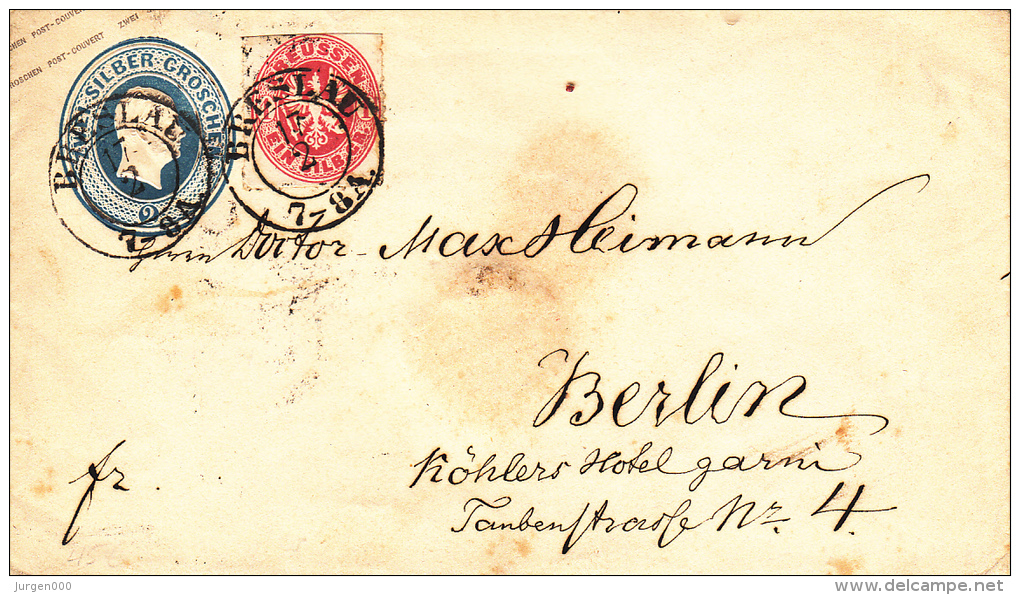 SCHEN POST-COUVERT ZWEI
GROSCHEN POST-COUVERT
ZWEI SILBER GROSCHEN
2
PREUSSEN
EIN SILB.GR.
BRESLAU
17
2
7-8A.
BRESLAU
17
2
7-8A.
Herrn Doctor Max Heimann
Berlin
Köhlers Hotel garni
Taubenstrasse Nr. 4.
fr.
jurgen000
www.delcampe.net